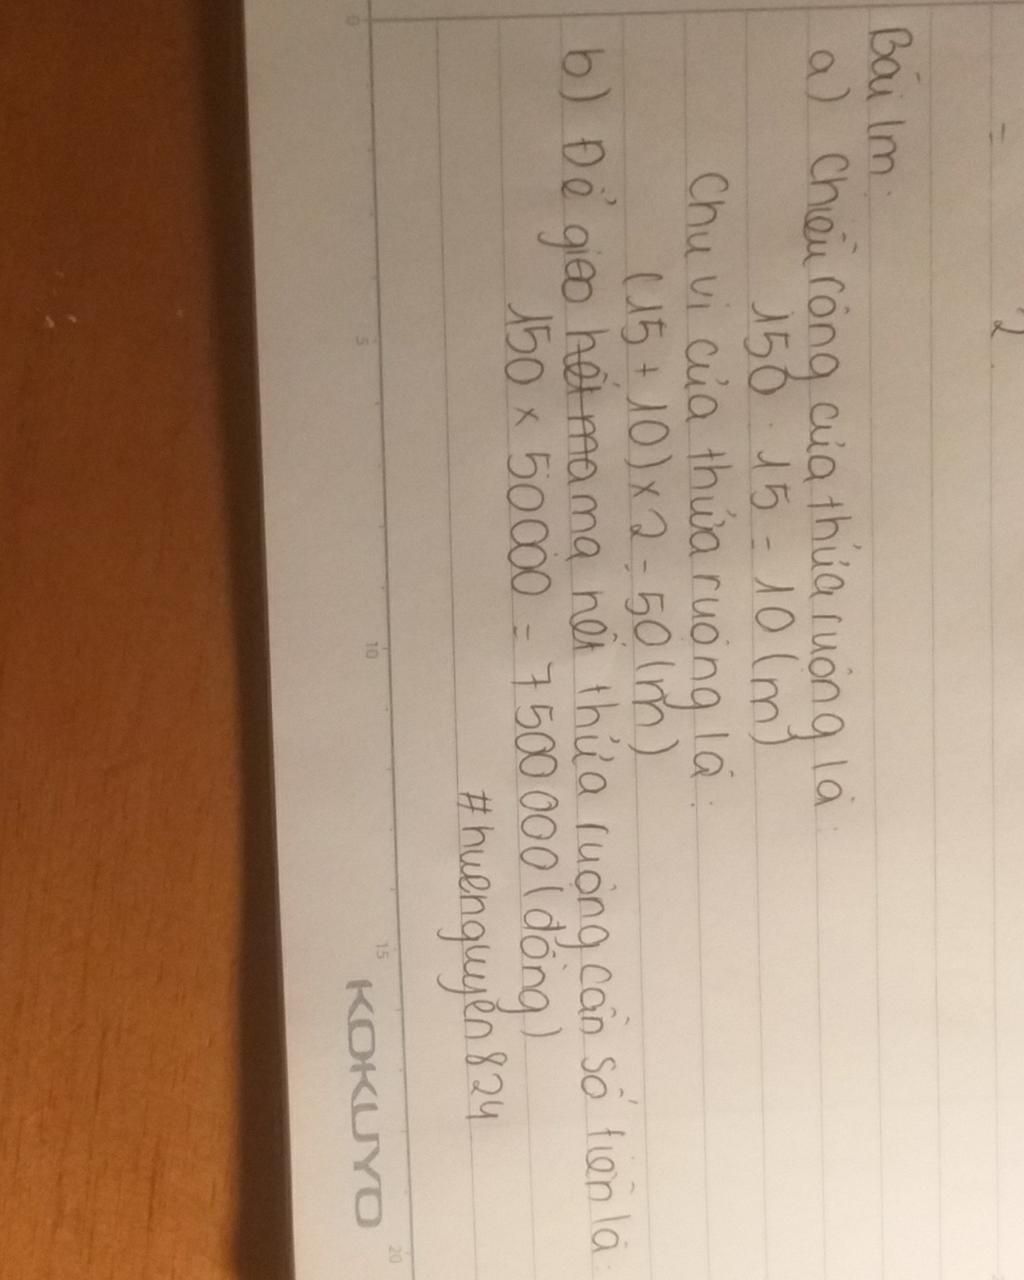 =
2
Bài lm:
a) Chiều rộng của thửa ruộng là:
150 : 15 = 10 (m)
Chu vi của thửa ruộng là:
(15 + 10) x 2 = 50 (m)
b) Để gieo hết ma mạ hết thửa ruộng cần số tiền là:
150 x 50000 = 7500000 (đồng)
#huenguyen824
0 5 10 15 20
KOKUYO